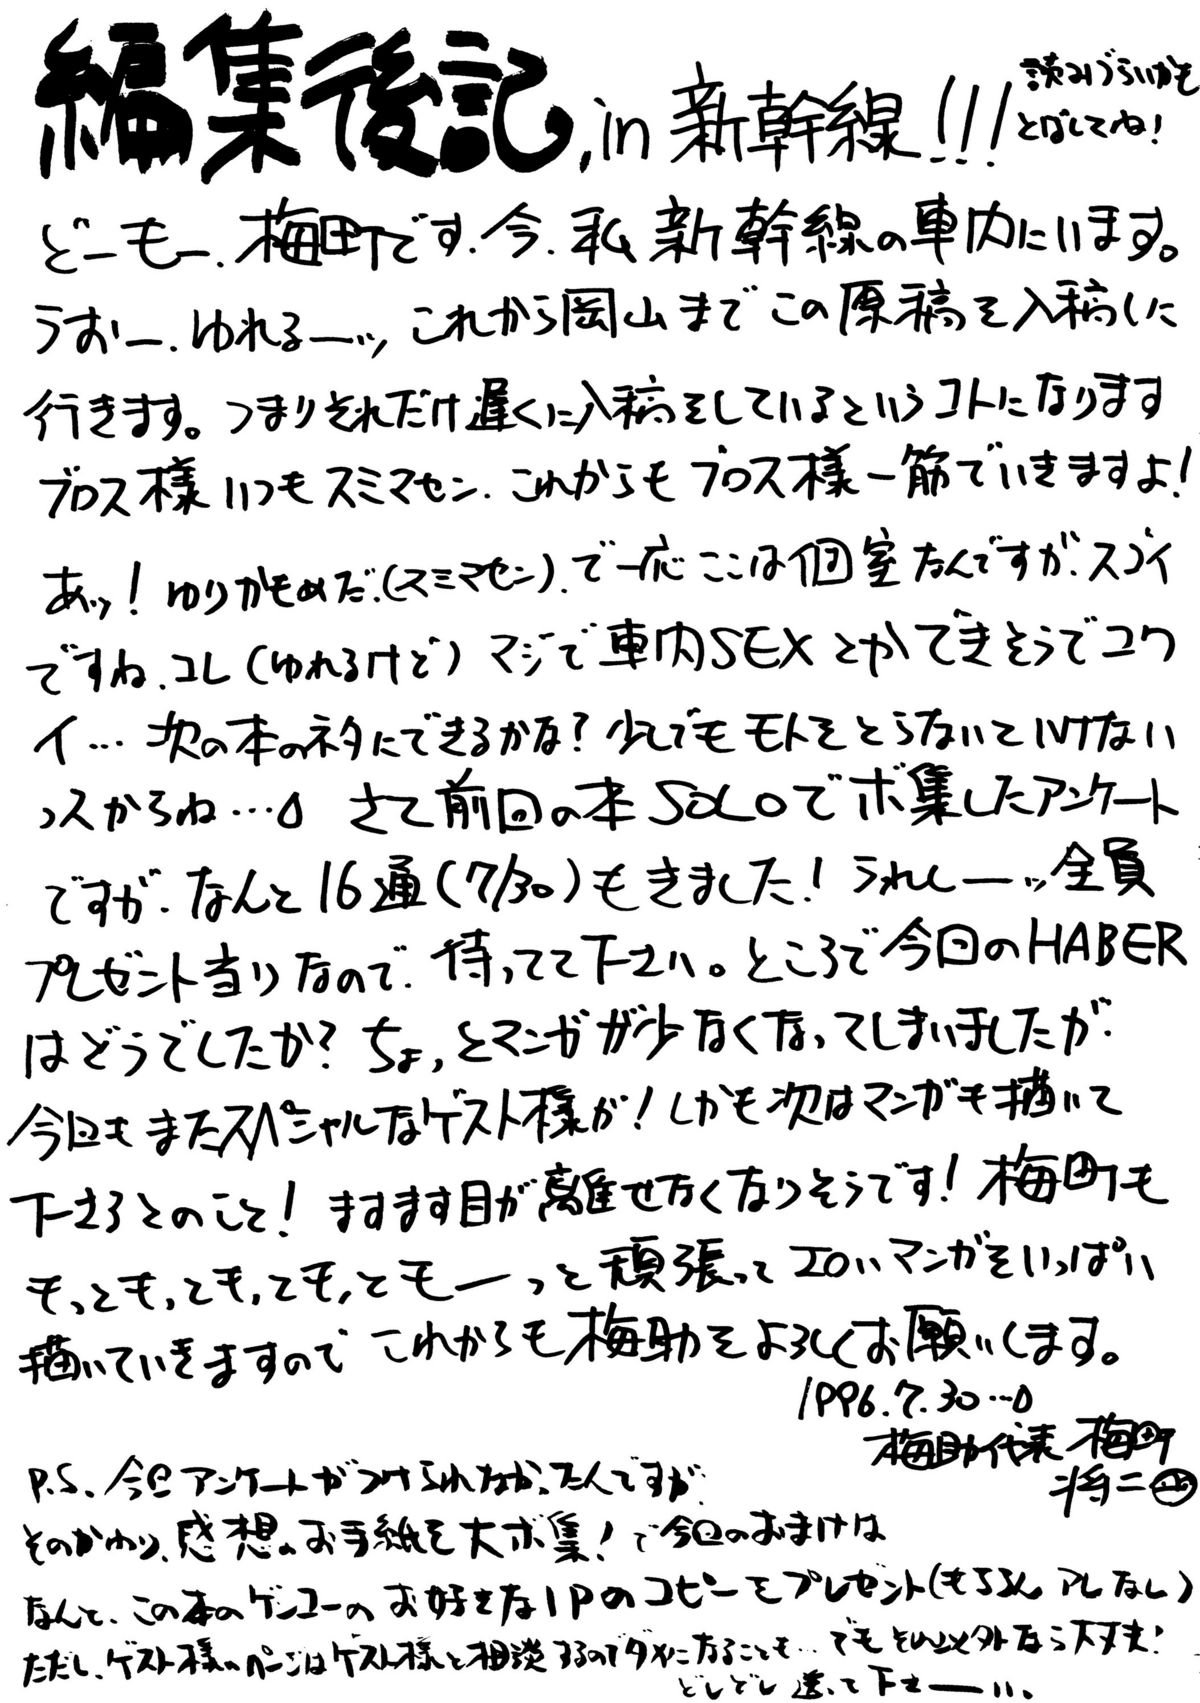 編集後記, in 新幹線!!!
読みづらいかも
とばしてね!
どーもー、梅町です。今、私新幹線の車内にいます。
うおー、ゆれるーッ これから岡山までこの原稿を入稿しに
行きます。つまりそれだけ遅くに入稿をしているというコトになります
ブロス様いつもスミマセン。これからもブロス様一筋でいきますよ!
あッ!ゆりかもめだ。(スミマセン)。で一応ここは個室なんですが、スゴイ
ですね、コレ(ゆれるけど)マジで車内SEXとかできそうでコワ
イ…次の本のネタにできるかな?少しでもモトをとらないといけない
っスからね…。さて前回の本SOLOでボ集したアンケート
ですが、なんと16通(7/30)もきました!うれしーーッ全員
プレゼント当りなので、待ってて下さい。ところで今回のHABER
はどうでしたか?ちょっとマンガが少なくなってしまいましたが、
今回もまたスペシャルなゲスト様が!しかも次はマンガも描いて
下さるとのこと!ますます目が離せなくなりそうです!梅町も
もっともっともっともっともーーっと頑張ってエロいマンガをいっぱい
描いていきますので これからも梅助をよろしくお願いします。
1996.7.30…。
梅助代表 梅町
将二
P.S. 今回アンケートがつけられなかったんですが、
そのかわり、感想のお手紙を大ボ集!で今回のおまけは
なんと、この本のゲンコーのお好きな1Pのコピーをプレゼント(もちろんアレなし)
ただし、ゲスト様のページはゲスト様と相談するのでダメになることも…でもそれ以外なら大丈夫!
どしどし送って下さーーい。